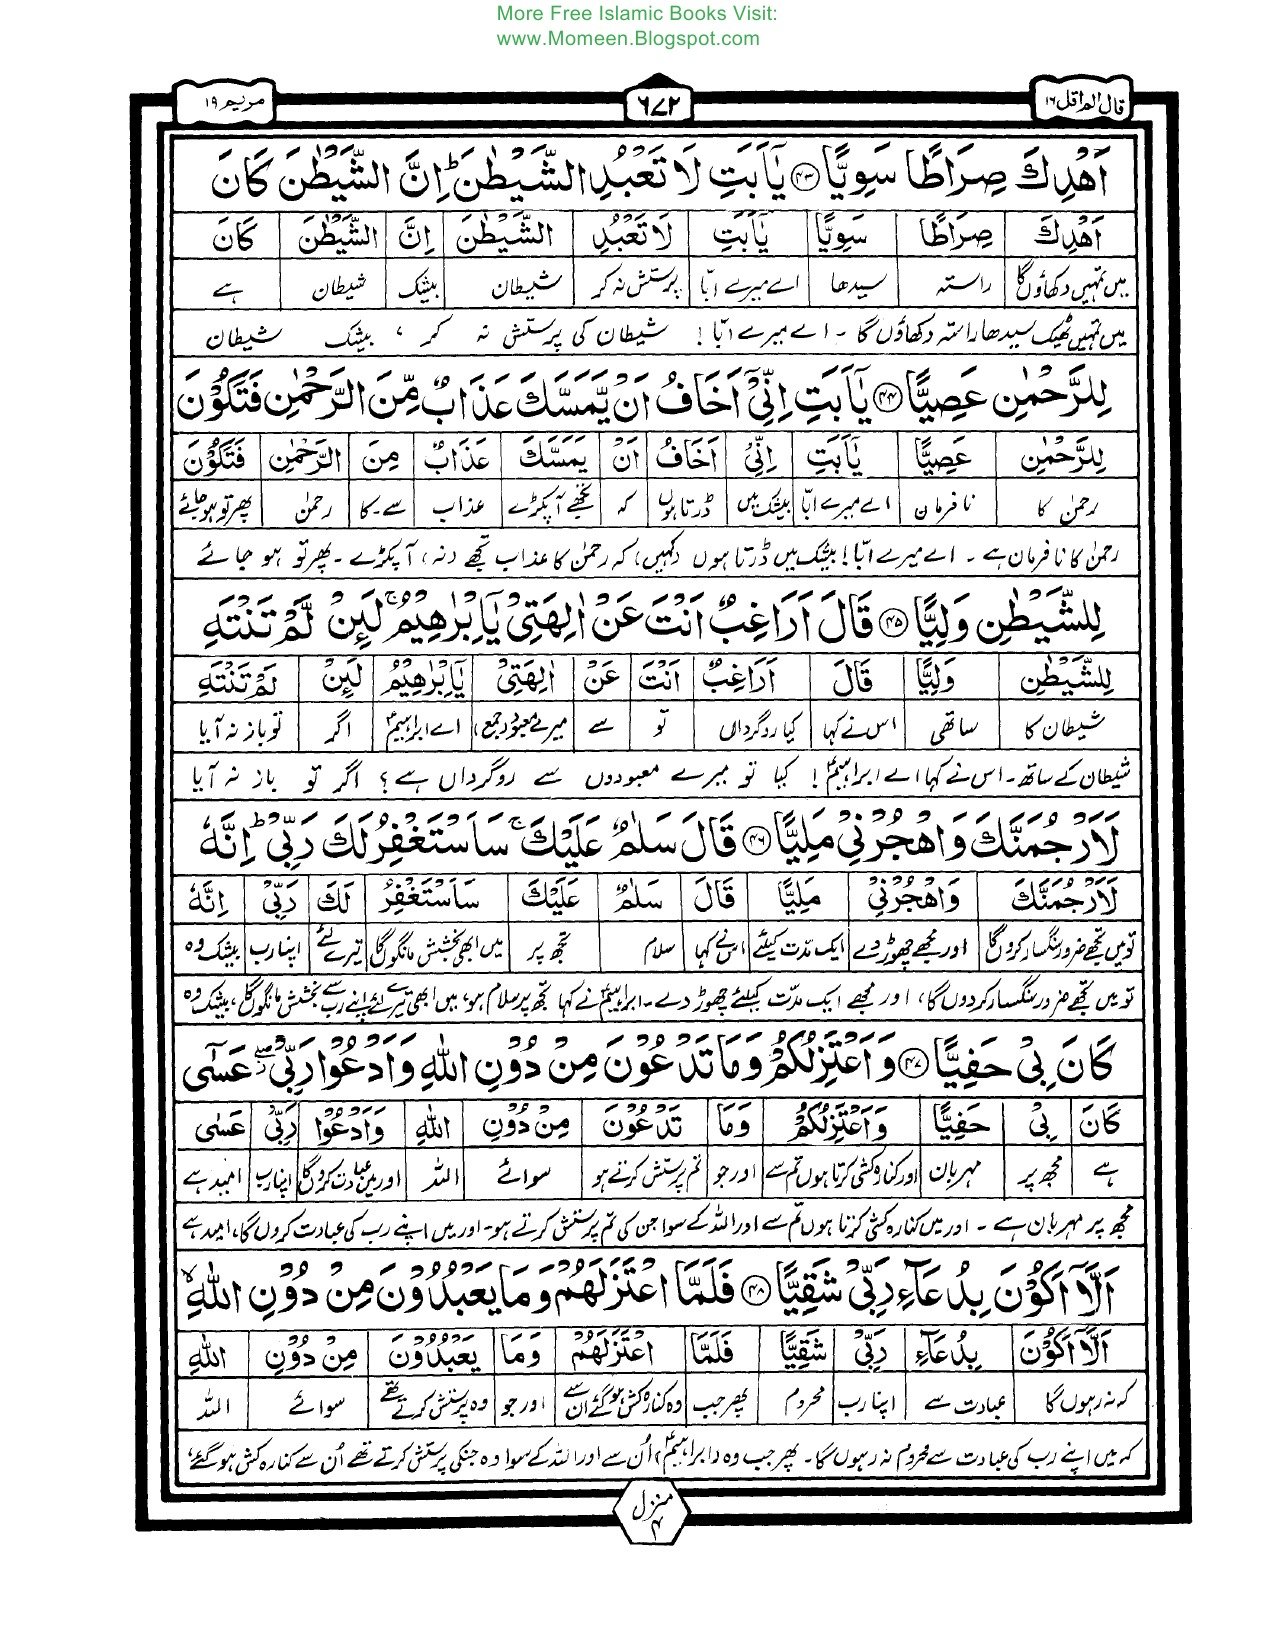 More Free Islamic Books Visit:
www.Momeen.Blogspot.com
قال الم اقل ۱۶
۶۷۲
مریم ۱۹
اَهْدِكَ صِرَاطًا سَوِيًّا ۴۳ يٰۤاَبَتِ لَا تَعْبُدِ الشَّيْطٰنَ ؕ اِنَّ الشَّيْطٰنَ كَانَ
اَهْدِكَ صِرَاطًا سَوِيًّا يٰۤاَبَتِ لَا تَعْبُدِ الشَّيْطٰنَ اِنَّ الشَّيْطٰنَ كَانَ
میں تمہیں دکھاؤں گا راستہ سیدھا اے میرے ابّا پرستش نہ کر شیطان بیشک شیطان ہے
میں تمہیں ٹھیک سیدھا راستہ دکھاؤں گا ۔ اے میرے ابّا ! شیطان کی پرستش نہ کر ، بیشک شیطان
لِلرَّحْمٰنِ عَصِيًّا ۴۴ يٰۤاَبَتِ اِنِّيْۤ اَخَافُ اَنْ يَّمَسَّكَ عَذَابٌ مِّنَ الرَّحْمٰنِ فَتَكُوْنَ
لِلرَّحْمٰنِ عَصِيًّا يٰۤاَبَتِ اِنِّيْۤ اَخَافُ اَنْ يَمَسَّكَ عَذَابٌ مِنَ الرَّحْمٰنِ فَتَكُوْنَ
رحمٰن کا نافرمان اے میرے ابّا بیشک میں ڈرتا ہوں کہ تجھے آپکڑے عذاب سے۔کا رحمٰن پھر تو ہو جائے
رحمٰن کا نافرمان ہے ۔ اے میرے ابّا ! بیشک میں ڈرتا ہوں (کہیں) کہ رحمٰن کا عذاب تجھے (نہ) آپکڑے ۔ پھر تو ہو جائے
لِلشَّيْطٰنِ وَلِيًّا ۴۵ قَالَ اَرَاغِبٌ اَنْتَ عَنْ اٰلِهَتِيْ يٰۤاِبْرٰهِيْمُ ۚ لَئِنْ لَّمْ تَنْتَهِ
لِلشَّيْطٰنِ وَلِيًّا قَالَ اَرَاغِبٌ اَنْتَ عَنْ اٰلِهَتِيْ يٰۤاِبْرٰهِيْمُ لَئِنْ لَمْ تَنْتَهِ
شیطان کا ساتھی اس نے کہا کیا روگرداں تو سے میرے معبود (جمع) اے ابراہیمؑ اگر تو باز نہ آیا
شیطان کے ساتھ ۔ اس نے کہا اے ابراہیمؑ ! کیا تو میرے معبودوں سے روگرداں ہے ؟ اگر تو باز نہ آیا
لَاَرْجُمَنَّكَ وَاهْجُرْنِيْ مَلِيًّا ۴۶ قَالَ سَلٰمٌ عَلَيْكَ ۚ سَاَسْتَغْفِرُ لَكَ رَبِّيْ ؕ اِنَّهٗ
لَاَرْجُمَنَّكَ وَاهْجُرْنِيْ مَلِيًّا قَالَ سَلٰمٌ عَلَيْكَ سَاَسْتَغْفِرُ لَكَ رَبِّيْ اِنَّهٗ
تو میں تجھے ضرور سنگسار کردوں گا اور مجھے چھوڑ دے ایک مدّت کیلئے اس نے کہا سلام تجھ پر میں ابھی بخشش مانگوں گا تیرے لئے اپنا رب بیشک وہ
تو میں تجھے ضرور سنگسار کردوں گا ، اور مجھے ایک مدّت کیلئے چھوڑ دے ۔ ابراہیمؑ نے کہا تجھ پر سلام ہو، میں ابھی تیرے لئے اپنے رب سے بخشش مانگوں گا، بیشک وہ
كَانَ بِيْ حَفِيًّا ۴۷ وَاَعْتَزِلُكُمْ وَمَا تَدْعُوْنَ مِنْ دُوْنِ اللّٰهِ وَاَدْعُوْا رَبِّيْ ۖ عَسٰۤى
كَانَ بِيْ حَفِيًّا وَاَعْتَزِلُكُمْ وَمَا تَدْعُوْنَ مِنْ دُوْنِ اللّٰهِ وَاَدْعُوْا رَبِّيْ عَسٰۤى
ہے مجھ پر مہربان اور کنارہ کشی کرتا ہوں تم سے اور جو تم پرستش کرتے ہو سوائے اللہ اور میں عبادت کروں گا اپنا رب امید ہے
مجھ پر مہربان ہے ۔ اور میں کنارہ کشی کرتا ہوں تم سے اور اللہ کے سوا جن کی تم پرستش کرتے ہو ۔ اور میں اپنے رب کی عبادت کروں گا، امید ہے
اَلَّاۤ اَكُوْنَ بِدُعَآءِ رَبِّيْ شَقِيًّا ۴۸ فَلَمَّا اعْتَزَلَهُمْ وَمَا يَعْبُدُوْنَ مِنْ دُوْنِ اللّٰهِ ۙ
اَلَّاۤ اَكُوْنَ بِدُعَآءِ رَبِّيْ شَقِيًّا فَلَمَّا اعْتَزَلَهُمْ وَمَا يَعْبُدُوْنَ مِنْ دُوْنِ اللّٰهِ
کہ نہ رہوں گا عبادت سے اپنا رب محروم پھر جب وہ کنارہ کش ہو گئے ان سے اور جو وہ پرستش کرتے تھے سوائے اللہ
کہ میں اپنے رب کی عبادت سے محروم نہ رہوں گا ۔ پھر جب وہ (ابراہیمؑ) اُن سے اور اللہ کے سوا وہ جنکی پرستش کرتے تھے اُن سے کنارہ کش ہو گئے،
منزل ۴